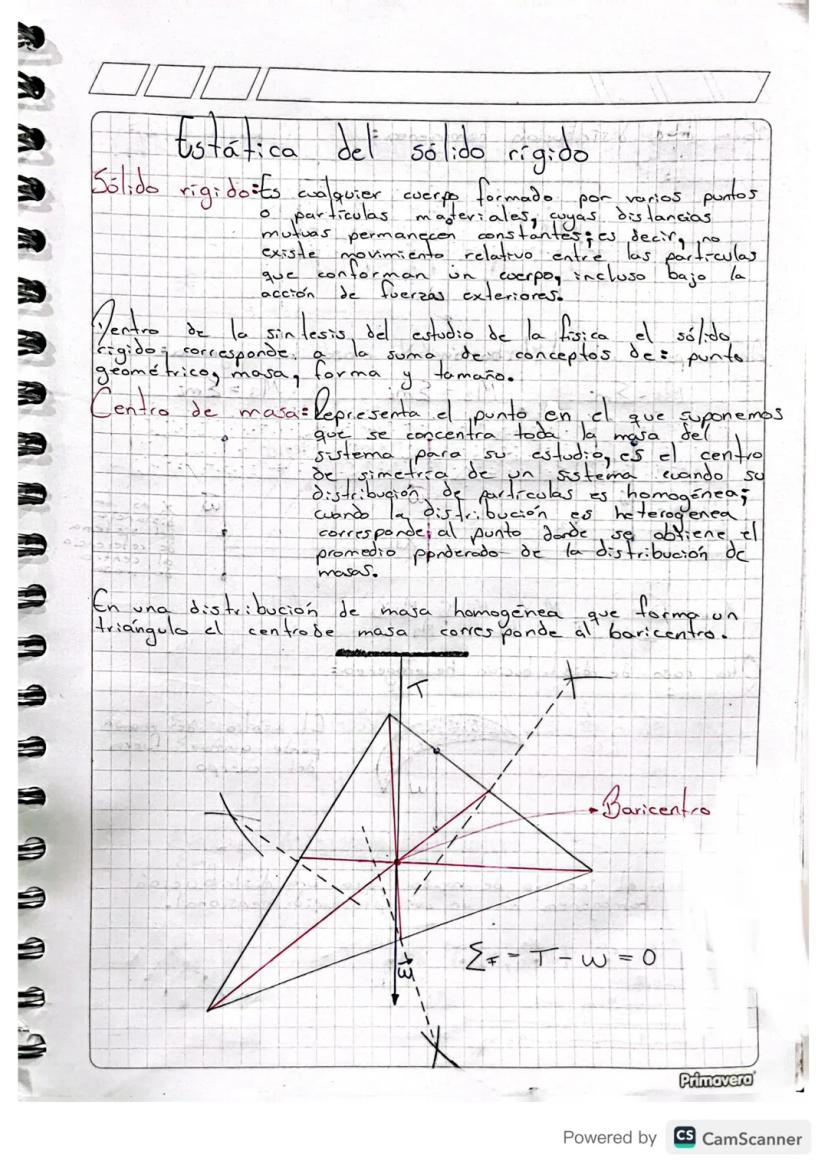 Estática del sólido rígido
Sólido rígido: Es cualquier cuerpo formado por varios puntos
o partículas materiales, cuyas distancias
mutuas permanecen constantes; es decir, no
existe movimiento relativo entre las partículas
que conforman un cuerpo, incluso bajo la
acción de fuerzas exteriores.
Dentro de la sintesis del estudio de la física el sólido
rígido; corresponde a la suma de conceptos de: punto
geométrico, masa, forma y tamaño.
Centro de masa: Representa el punto en el que suponemos
que se concentra toda la masa del
sistema para su estudio, es el centro
de simetría de un sistema cuando su
distribución de partículas es homogénea;
cuando la distribución es heterogenea
corresponde al punto donde se obtiene el
promedio ponderado de la distribución de
masas.
En una distribución de masa homogénea que forma un
triángulo el centro de masa corresponde al baricentro.
T
Baricentro
ΣF = T - W = 0
W
Primavera
Powered by CS CamScanner